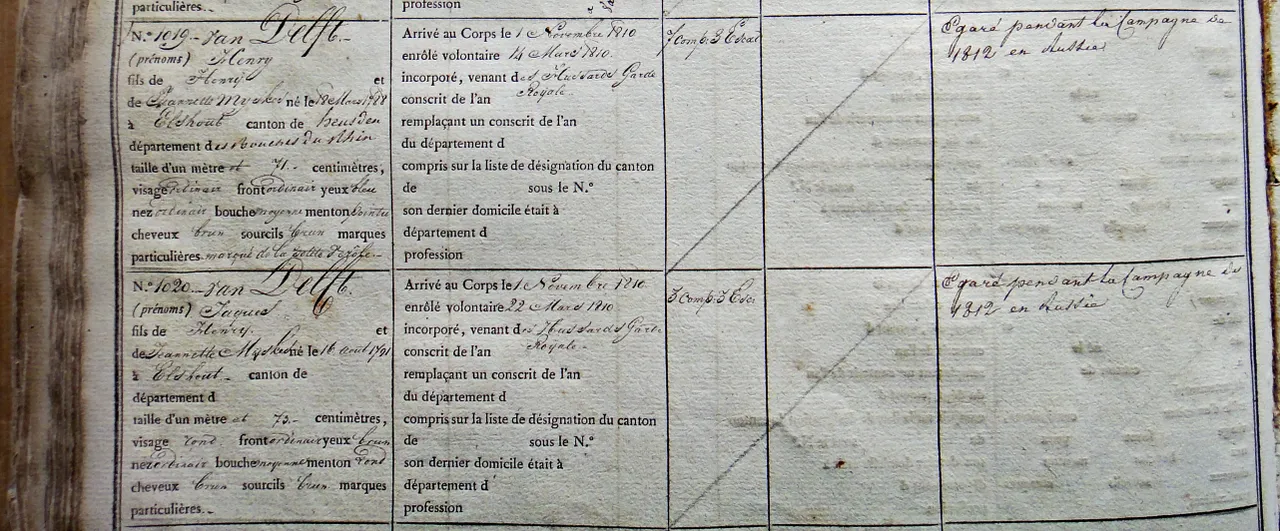 particulières.
profession
N.º 1019 - Van Delft. -
(prénoms) Henry
fils de Henry et
de Jeannette né le 18 Mars 1788
à Elshout canton de heusden
département des Bouches du Rhin
taille d'un mètre et 71. - centimètres,
visage ordinair front ordinair yeux bleu
nez ordinair bouche moyenne menton pointu
cheveux brun sourcils brun marques
particulières. marqué de la petite
Arrivé au Corps le 1 Novembre 1810
enrôlé volontaire 14 Mars 1810.
incorporé, venant des Hussards Garde
Royale.
conscrit de l'an
remplaçant un conscrit de l'an
du département d
compris sur la liste de désignation du canton
de sous le N.º
son dernier domicile était à
département d
profession
7 Comp: 3 Escad
Egaré pendant la Campagne de
1812 en Russie
N.º 1020. - Van Delft.
(prénoms) Jaques
fils de Henry. et
de Jeannette né le 16 août 1791
à Elshout - canton de
département d
taille d'un mètre et 73. - centimètres,
visage rond front ordinair yeux brun
nez ordinair bouche moyenne menton rond
cheveux brun sourcils brun marques
particulières. -
Arrivé au Corps le 1 Novembre 1810
enrôlé volontaire 22 Mars 1810
incorporé, venant des Hussards Garde
Royale -
conscrit de l'an
remplaçant un conscrit de l'an
du département d
compris sur la liste de désignation du canton
de sous le N.º
son dernier domicile était à
département d
profession
3 Comp: 3 Esca
Egaré pendant la Campagne de
1812 en Russie